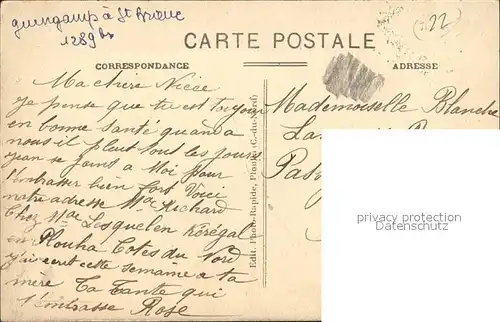 guingamp à St Brieuc
1289 bs
(22)
CARTE POSTALE
CORRESPONDANCE
ADRESSE
Ma chère Nièce
je pense que tu est toujours
en bonne santé quand a
nous il pleut tout les jours
jean se joins a Moi pour
t'embrasser bien fort Voici
notre adresse Ma Richard
Chez Me Lesquelen Kérégal
en Plouha Cotes du Nord
j'ai ecrit cette semaine a ta
mère Ta Tante qui
t'embrasse Rose
Edit. Photo-Rapide, Plouha (C.-du-Nord)
Mademoiselle Blanche
La
Pas
privacy protection
Datenschutz